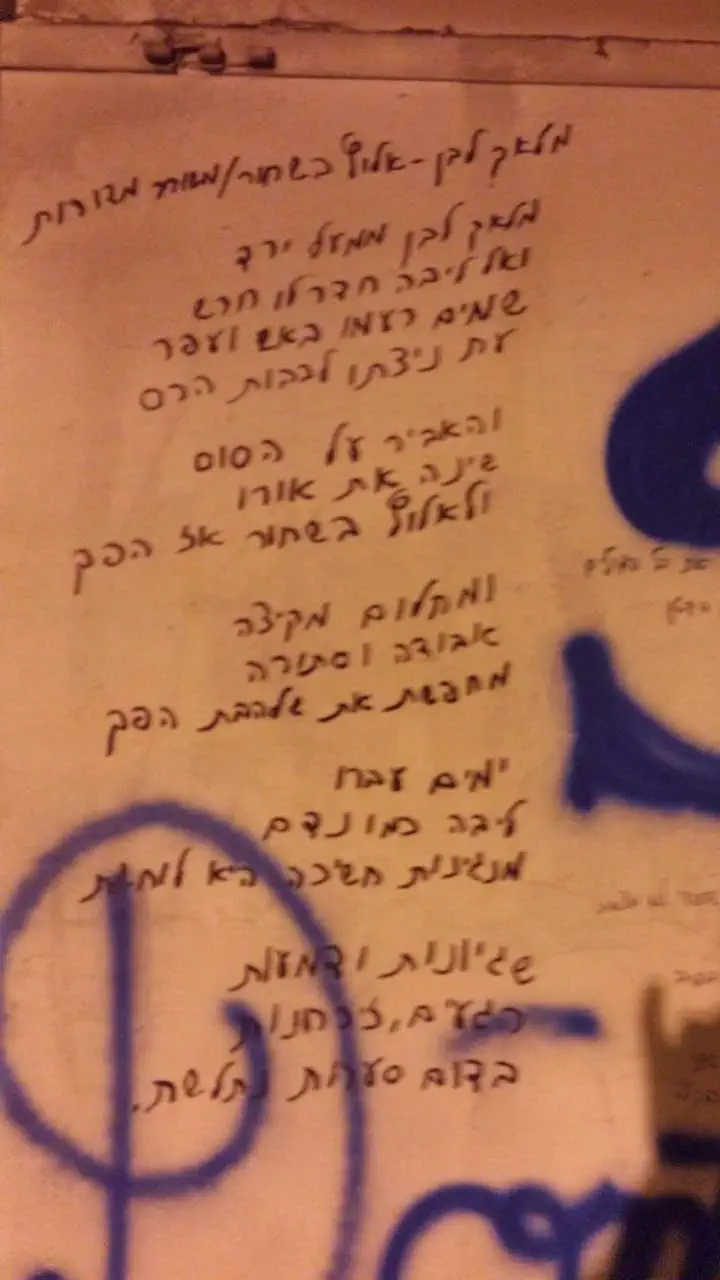 מלאך לבן - אליל בשחור/ מדורות
מלאך לבן ממעל ירד
ואל ליבה חדר לו חרש
שמים רעמו באש ועפר
עת ניצתו לבבות הרס
והאביר על הסוס
שינה את אורו
ולאליל בשחור אז הפך
ומחלום מקיצה
אבודה וסתורה
מחפשת את שלהבת הפך
ימים עברו
ליבה כמו נדם
מנגינות חשיכה היא לוחשת
שגיונות ודמעות
רגעים, זכרונות
בדום סערות נתלשת.
את כל